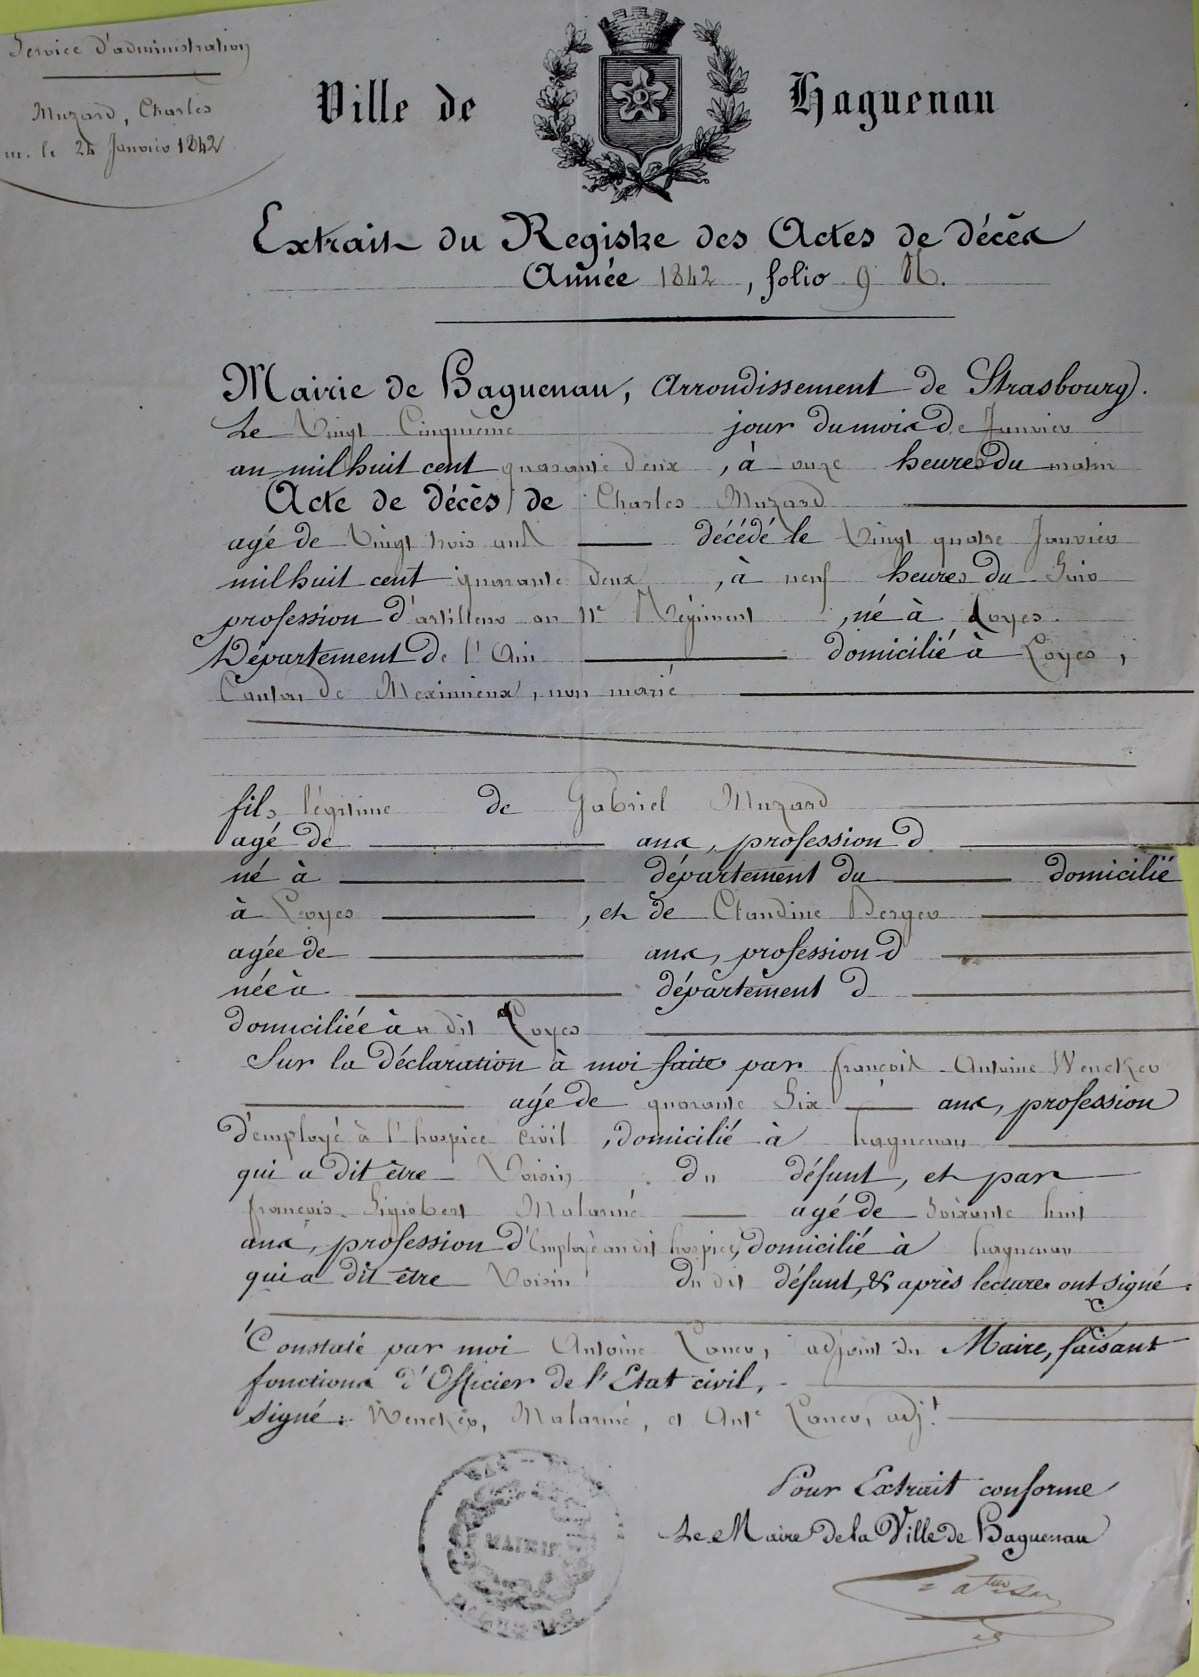 Service d'administration
Muzard, Charles
m. le 24 Janvier 1842
Ville de Haguenau
Extrait du Registre des Actes de décès
Année 1842, folio 9
Mairie de Haguenau, Arrondissement de Strasbourg.
Le Vingt Cinquième jour du mois de Janvier
an mil huit cent quarante deux, à onze heures du matin
Acte de décès de Charles Muzard
agé de Vingt trois ans décédé le Vingt quatre Janvier
mil huit cent quarante deux, à neuf heures du Soir
profession d'artilleur au 11e Régiment, né à Loyes
Département de l'Ain domicilié à Loyes,
Canton de Meximieux, non marié
fils légitime de Gabriel Muzard
agé de ans, profession d
né à département du domicilié
à Loyes, et de Claudine Berger
agée de ans, profession d
née à département d
domiciliée à u dit Loyes
Sur la déclaration à moi faite par françois Antoine Wencker
agé de quarante Six ans, profession
d'employé à l'hospice civil, domicilié à haguenau
qui a dit être Voisin du défunt, et par
françois Sigisbert Malarmé agé de Soixante huit
ans, profession d'Employé au dit hospice, domicilié à haguenau
qui a dit être Voisin du dit défunt, & après lecture ont signé.
Constaté par moi Antoine adjoint du Maire, faisant
fonctions d'Officier de l'Etat civil,
signé: Wencker, Malarmé, et Ante adjt
Pour Extrait conforme
Le Maire de la Ville de Haguenau
MAIRIE